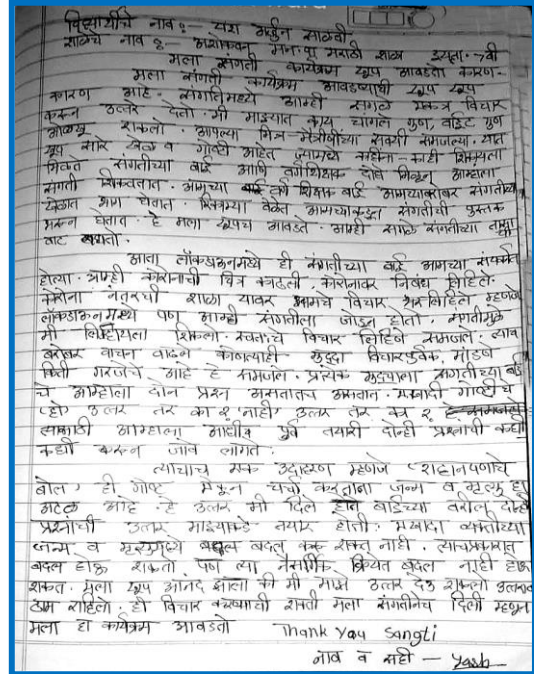 विद्यार्थीचे नाव :- यश अर्जुन साळवी
शाळेचे नाव :- मनपा मराठी शाळा इयत्ता - ७वी
मला संगती कार्यक्रम खूप आवडतो कारण -
मला संगती कार्यक्रम आवडण्याची खूप खूप
कारण आहे. संगतीमध्ये आम्ही सगळे एकत्र विचार
करून उत्तर देतो. मी माझ्यात काय चांगले गुण, वाईट गुण
ओळखू शकलो. आपल्या मित्र-मैत्रीणींच्या सवयी समजल्या. यात
खूप सारे खेळ व गोष्टी आहेत ज्यामधे काहीना-काही शिकायला
मिळते संगतीच्या बाई आणि वर्गशिक्षक दोघे मिळून आम्हाला
संगती शिकवतात. आमच्या वर्ग शिक्षक बाई आमच्याबरोबर संगतीच्या
खेळात भाग घेतात. रिकाम्या वेळेत आमच्याकडून संगतीची पुस्तक
भरून घेतात. हे मला खूपच आवडते. आम्ही सगळे संगतीच्या तासाची
वाट बघतो.
आता लॉकडाऊनमध्ये ही संगतीच्या बाई आमच्या संपर्कात
होत्या. आम्ही कोरोनाची चित्र काढली कोरोनावर निबंध लिहिले.
कोरोना नंतरची शाळा यावर आमचे विचार लिहिले म्हणजे
लॉकडाऊनमध्ये पण आम्ही संगतीला जोडून होतो. संगतीमुळे
मी लिहायला शिकलो. स्वतःचे विचार लिहिणे समजले. त्याच
बरोबर वाचन वाढले कोणत्याही मुद्द्या विचारपूर्वक, मांडणे
किती गरजेचे आहे हे समजले. प्रत्येक मुद्द्याला संगतीच्या बाई
चे आम्हाला दोन प्रश्न असतातच असतात. एखादी गोष्टीचे
'हो' उत्तर तर का? 'नाही' उत्तर तर का?
त्यासाठी आम्हाला आधीच पूर्व तयारी दोन्ही प्रश्नाची कधी
कधी करून जावे लागते.
त्याचाच एक उदाहरण म्हणजे 'शहाणपणाचे
बोल' ही गोष्ट ऐकून चर्चा करताना जन्म व मृत्यु हा
अटळ आहे. हे उत्तर मी दिले बाईंच्या वरील दोन्ही
प्रश्नाची उत्तर माझ्याकडे तयार होती. एखादा व्यक्तीच्या
जन्म व मृत्यूमध्ये बदल करू शकत नाही. त्याचप्रकारात
बदल होऊ शकतो. पण त्या नैसर्गिक क्रियेत बदल नाही होऊ
शकत. मला खूप आनंद झाला की मी माझे उत्तर देऊ शकलो उत्तरावर
ठाम राहिलो. ही विचार करण्याची शक्ती मला संगतीनेच दिली म्हणून
मला हा कार्यक्रम आवडतो Thank You Sangti
नाव व सही - Yash